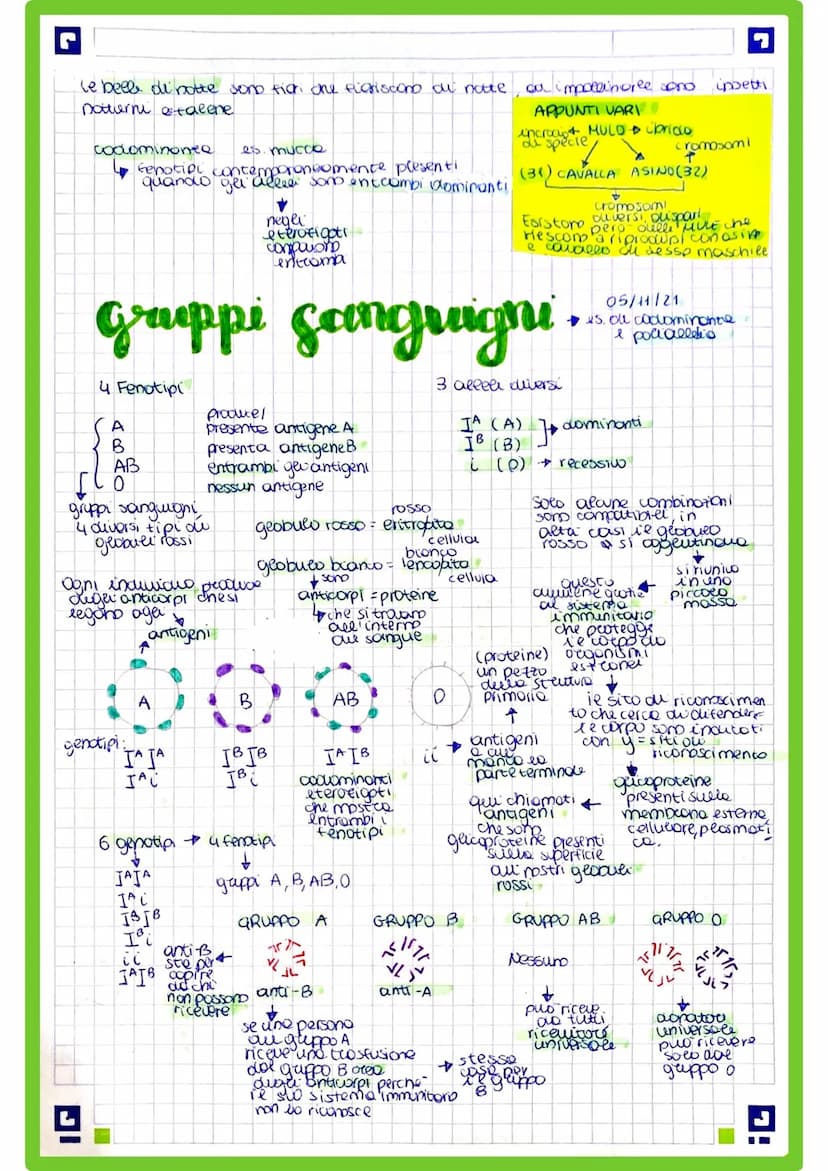 le belle di notte sono fiori che fioriscono di notte, gli impollinatori sono insetti
notturni e falene
codominante es. mucca
fenotipi contemporaneamente presenti
quando gli alleli sono entrambi dominanti
negli
eterozigoti
compaiono
entrambi
APPUNTI VARI
incrocio di specie MULO → ibrido
cromosomi
(31) CAVALLA ASINO (32)
cromosomi
diversi, dispari
Esistono però delle mule che
riescono a riprodursi con asino
e cavallo di sesso maschile
gruppi sanguigni
05/11/21
es. di codominante
e poliallelia
4 Fenotipi
A produce/presenta antigene A
B presenta antigene B
AB entrambi gli antigeni
O nessun antigene
gruppi sanguigni
4 diversi tipi di
globuli rossi
3 alleli diversi
Iᴬ (A)
Iᴮ (B)
dominanti
i (O) → recessivo
rosso
globulo rosso = eritrocita
cellula
bianco
globulo bianco = leucocita
cellula
sono
anticorpi = proteine
che si trovano
all'interno
del sangue
Ogni individuo produce
degli anticorpi che si
legono agli
antigeni
Solo alcune combinazioni
sono compatibili, in
altri casi il globulo
rosso si agglutinano
si riunivo
in uno
piccola
massa
questo
avviene grazie
al sistema
immunitario
che protegge
il corpo da
organismi
estranei
il sito di riconoscimen
to che cerca di difendere
il corpo sono indicati
con y = siti di
riconoscimento
glicoproteine
presenti sulla
membrana esterna
cellulare, plasmati
ca.
A
B
AB
O
genotipi:
IᴬIᴬ
Iᴬi
IᴮIᴮ
Iᴮi
IᴬIᴮ
codominanti
eterozigoti
che mostra
entrambi i
fenotipi
ii →
antigeni
a cui
manca la
parte terminale
(proteine)
un pezzo
della struttura
primaria
qui chiamati
antigeni
che sono
glicoproteine presenti
sulla superficie
dei nostri globuli
rossi
6 genotipi → 4 fenotipi
gruppi A, B, AB, O
IᴬIᴬ
Iᴬi
IᴮIᴮ
Iᴮi
ii
IᴬIᴮ
GRUPPO A
GRUPPO B
GRUPPO AB
GRUPPO O
anti-B
sta per
capire
da chi
non possono
ricevere
anti-B
anti-A
NESSUNO
può riceve
da tutti
ricevitore
universale
donatore
universale
può ricevere
solo dal
gruppo O
se una persona
di gruppo A
riceve una trasfusione
dal gruppo B crea
degli anticorpi perché
il suo sistema immunitario
non lo riconosce
stessa
cosa per
il gruppo
B